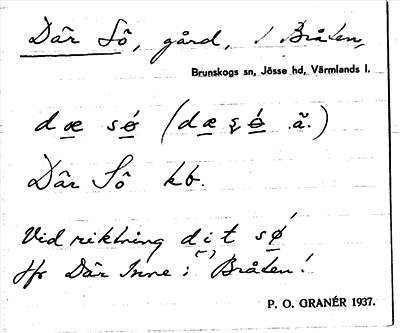 Där Sô, gård, i Bråten,
Brunskogs sn, Jösse hd, Värmlands l.
dæ sǿ (dæ ʂǿ ã.)
Där Sô kb.
Vid riktning dit sǿ
Jfr Där Inne i Bråten!
P. O. GRANÉR 1937.